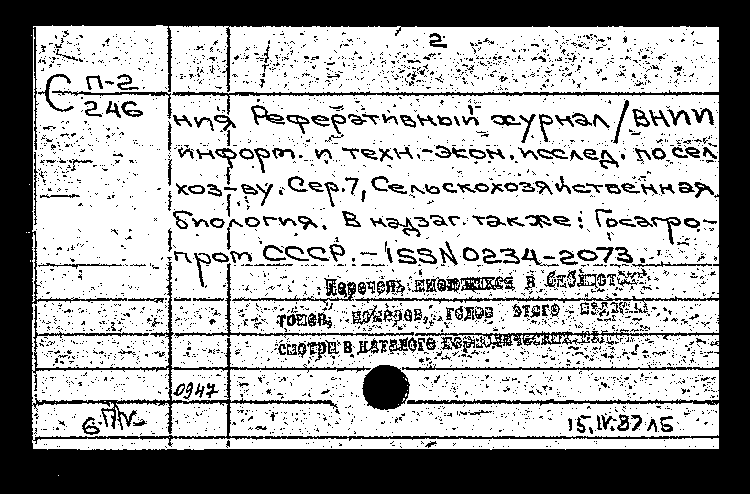 2
С П-2
246
ния Реферативный журнал/ВНИИ
информ. и техн.-экон. исслед. по сел
хоз-ву. Сер. 7, Сельскохозяйственная
биология. В надзаг. также: Госагро-
пром СССР. – ISSN 0234-2073.
Перечень имеющихся в библиотеке
томов, номеров, годов этого издания
смотри в каталоге периодических изданий
0947
6
15.IV.87 15